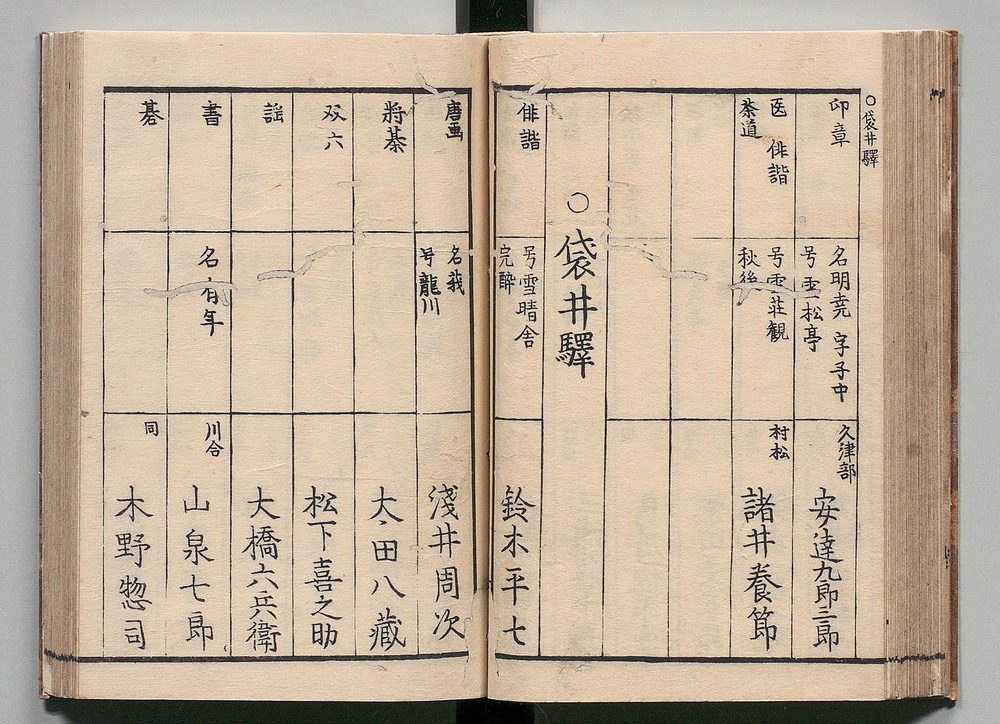 ○袋井驛
印章
名明尭 字子中
号雪松亭
久津部
安達九郎三郎
医 俳諧
茶道
号雪荘観
秋後
村松
諸井養節
○袋井驛
俳諧
号雪晴舎
完酔
鈴木平七
唐画
名我
号龍川
浅井周次
将棊
大田八藏
双六
松下喜之助
謡
大橋六兵衛
書
名有年
川合
山泉七郎
碁
同
木野惣司